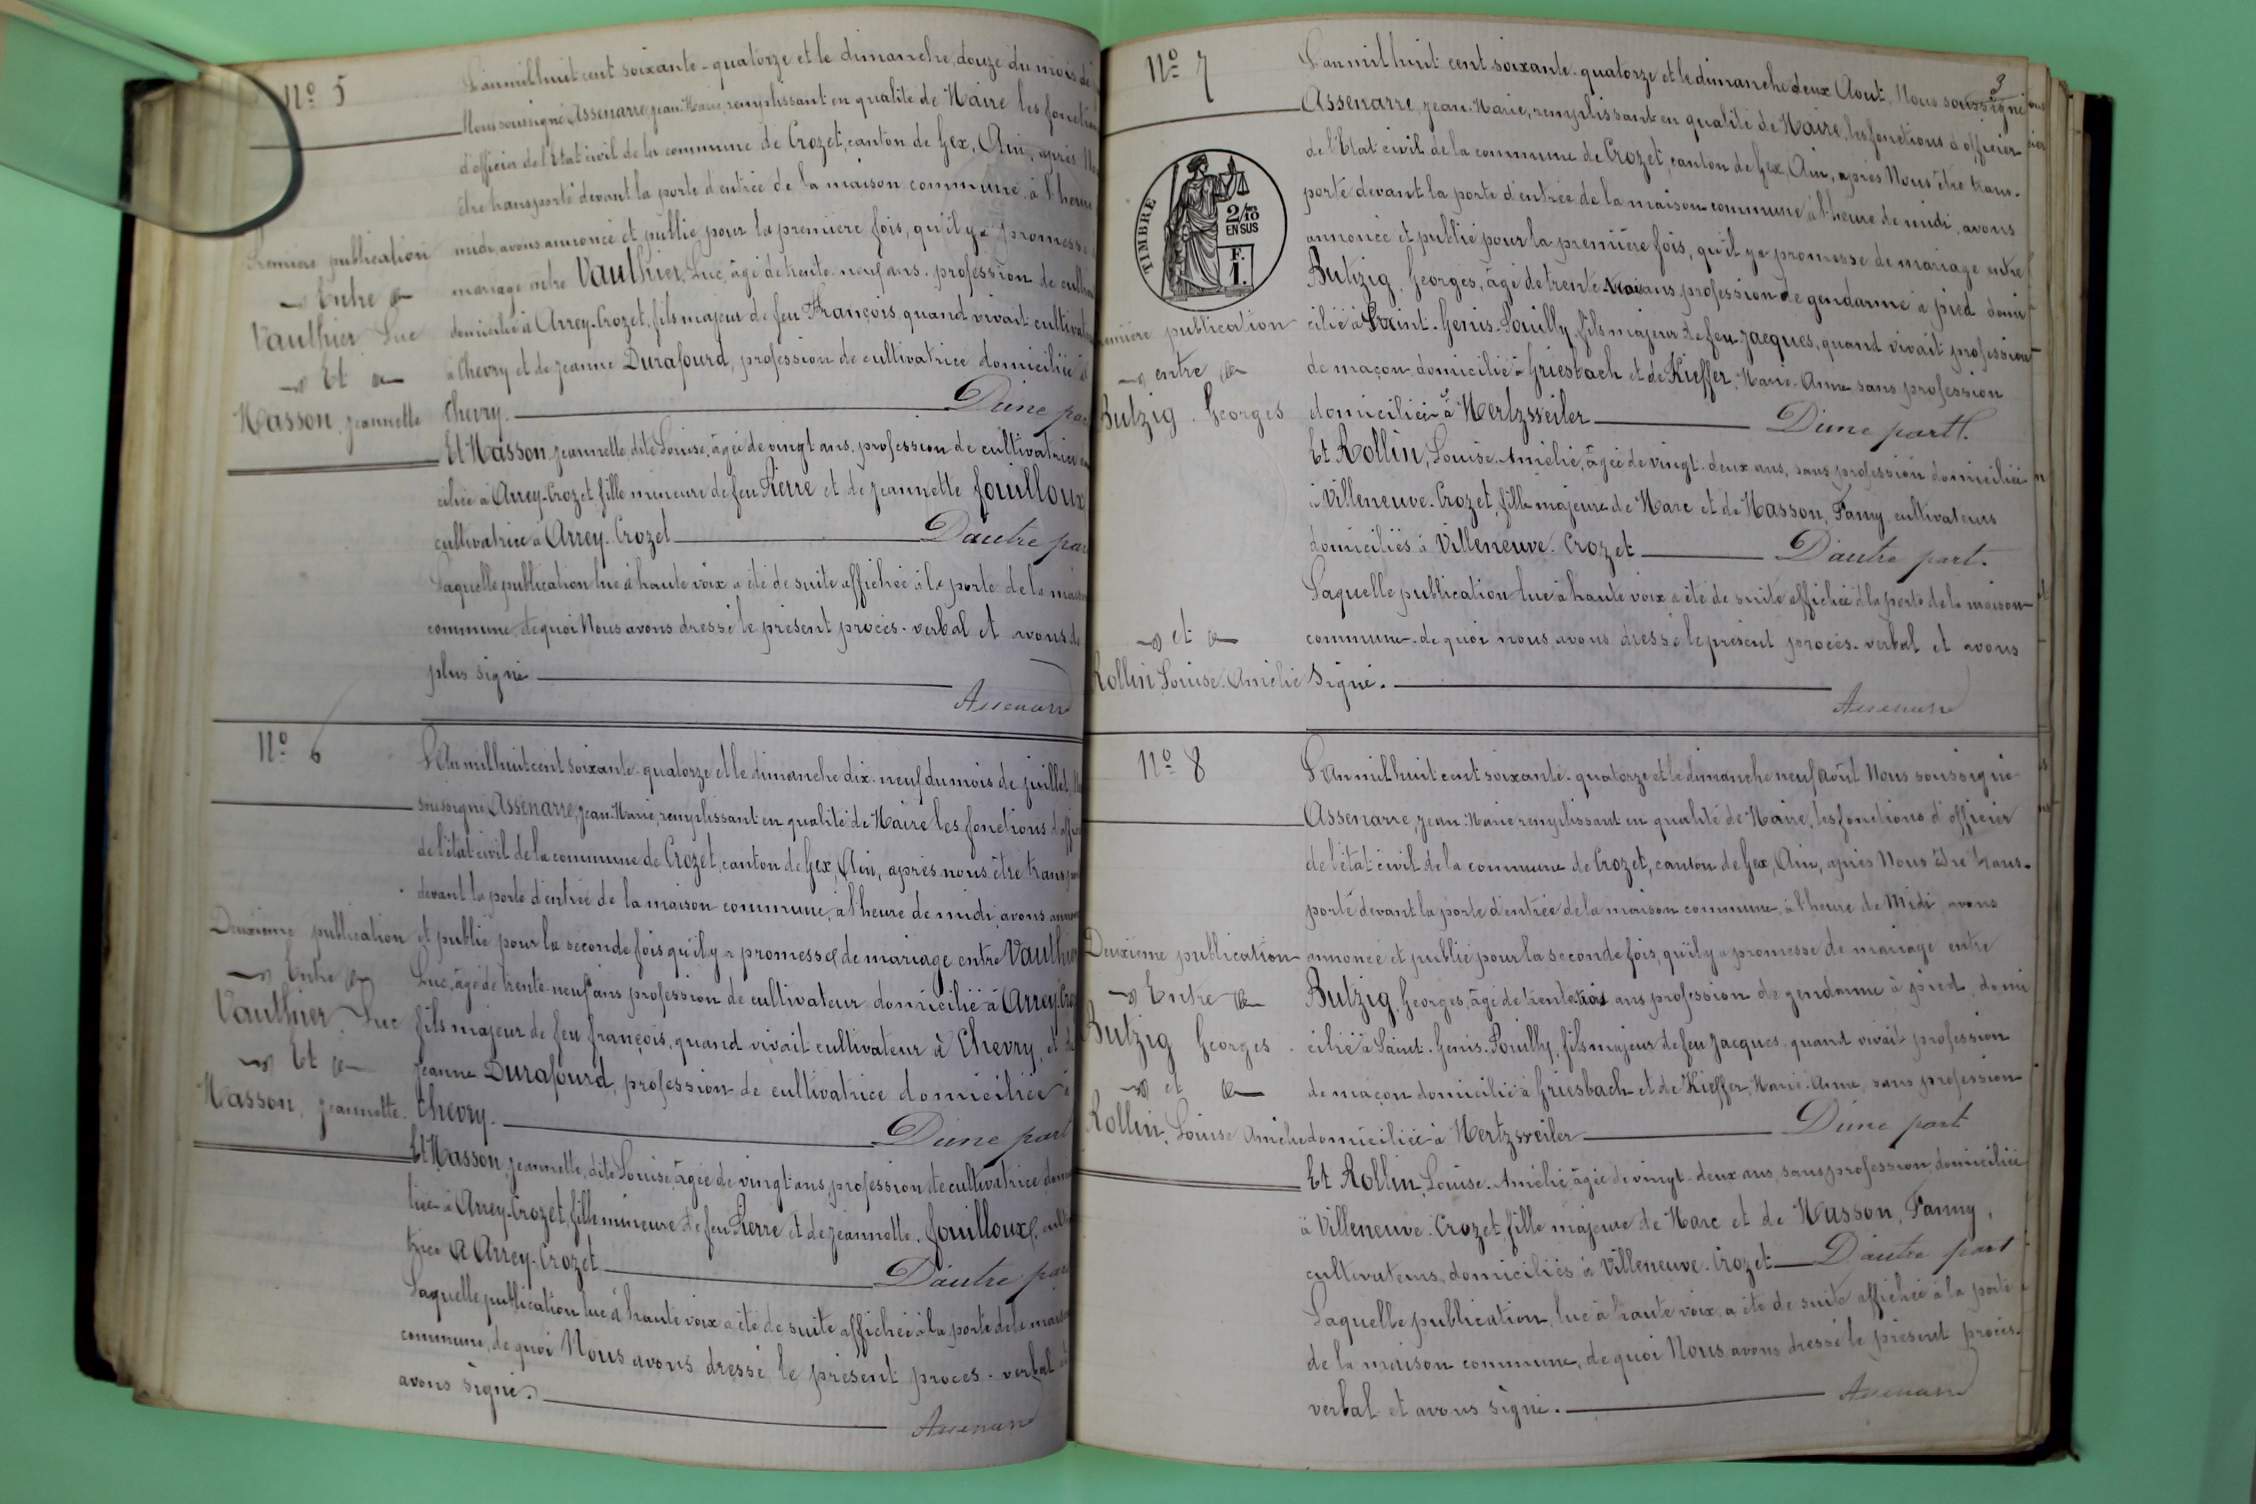 Nº 5
L'an mil huit cent soixante-quatorze et le dimanche, douze du mois de
Nous soussigné Assenarre, Jean-Marie, remplissant en qualité de Maire les foncti
d'officier de l'Etat civil de la commune de Crozet, canton de Gex, Ain, après N
être transporté devant la porte d'entrée de la maison commune, à l'heure
midi, avons annoncé et publié pour la première fois, qu'il y a promesse
mariage entre Vaulhier, Luc, âgé de trente-neuf ans, profession de cultiva
domicilié à Avrey-Crozet, fils majeur de feu François, quand vivait cultivate
à Chevry et de Jeanne Durafourd, profession de cultivatrice domiciliée à
Chevry. D'une par
Et Masson, Jeannette, dite Louise, âgée de vingt ans, profession de cultivatrice
ciliée à Avrey-Crozet, fille mineure de feu Pierre et de Jeannette Fouilloux,
cultivatrice à Avrey-Crozet D'autre par
Laquelle publication lue à haute voix a été de suite affichée à la porte de la mais
commune, de quoi Nous avons dressé le présent procès-verbal et avons de
plus signé
Assenarre
Première publication
Entre
Vaulhier Luc
Et
Masson, Jeannette
Nº 6
L'An mil huit cent soixante-quatorze et le dimanche dix-neuf du mois de juillet, N
soussigné Assenarre, Jean-Marie, remplissant en qualité de Maire les fonctions d'offi
de l'état civil de la commune de Crozet, canton de Gex, Ain, après nous être transp
devant la porte d'entrée de la maison commune, à l'heure de midi, avons annon
et publié pour la seconde fois qu'il y a promesse de mariage entre Vaulhier
Luc, âgé de trente-neuf ans profession de cultivateur domicilié à Avrey-Croz
fils majeur de feu François, quand vivait cultivateur à Chevry, et de
Jeanne Durafourd, profession de cultivatrice domiciliée à
Chevry. D'une part
Et Masson, Jeannette, dite Louise, âgée de vingt ans, profession de cultivatrice domi
liée à Avrey-Crozet, fille mineure de feu Pierre et de Jeannette Fouilloux, culti
trice à Avrey-Crozet D'autre par
Laquelle publication lue à haute voix a été de suite affichée à la porte de la maiso
commune, de quoi Nous avons dressé le présent procès-verbal et
avons signé.
Assenarre
Deuxième publication
Entre
Vaulhier, Luc
Et
Masson, Jeannette.
3
Nº 7
L'an mil huit cent soixante-quatorze et le dimanche deux Aout, Nous soussigné
Assenarre, Jean-Marie, remplissant en qualité de Maire, les fonctions d'officier
de l'Etat civil de la commune de Crozet, canton de Gex, Ain, après Nous être trans-
porté devant la porte d'entrée de la maison commune à l'heure de midi, avons
annoncé et publié pour la première fois, qu'il y a promesse de mariage entre
Butzig, Georges, âgé de trente trois ans, profession de gendarme à pied domi
cilié à Saint-Genis-Pouilly, fils majeur de feu Jacques, quand vivait profession
de maçon, domicilié à Griesbach et de Kieffer, Marie-Anne sans profession
domiciliée à Mertzweiler D'une part.
Et Rollin, Louise-Amélie, âgée de vingt-deux ans, sans profession domiciliée
à Villeneuve-Crozet, fille majeure de Marc et de Masson, Fanny, cultivateurs
domiciliés à Villeneuve-Crozet D'autre part.
Laquelle publication lue à haute voix a été de suite affichée à la porte de la maison
commune de quoi nous avons dressé le présent procès-verbal et avons
signé.
Assenarre
TIMBRE
2/10es
EN SUS
F.
1.
emière publication
entre
Butzig, Georges
et
Rollin, Louise-Amélie
Nº 8
L'An mil huit cent soixante-quatorze et le dimanche neuf août Nous soussigné
Assenarre, Jean-Marie remplissant en qualité de Maire, les fonctions d'officier
de l'état civil de la commune de Crozet, canton de Gex, Ain, après Nous être trans-
porté devant la porte d'entrée de la maison commune, à l'heure de Midi, avons
annoncé et publié pour la seconde fois, qu'il y a promesse de mariage entre
Butzig, Georges, âgé de trente trois ans profession de gendarme à pied, domi
cilié à Saint-Genis-Pouilly, fils majeur de feu Jacques, quand vivait profession
de maçon domicilié à Griesbach et de Kieffer, Marie-Anne, sans profession
domiciliée à Mertzweiler D'une part
Et Rollin, Louise-Amélie, âgée de vingt-deux ans, sans profession, domiciliée
à Villeneuve-Crozet, fille majeure de Marc et de Masson, Fanny,
cultivateurs, domiciliés à Villeneuve-Crozet D'autre part
Laquelle publication, lue à haute voix, a été de suite affichée à la porte
de la maison commune, de quoi Nous avons dressé le présent procès-
verbal et avons signé.
Assenarre
Deuxième publication
Entre
Butzig Georges
et
Rollin, Louise Amélie